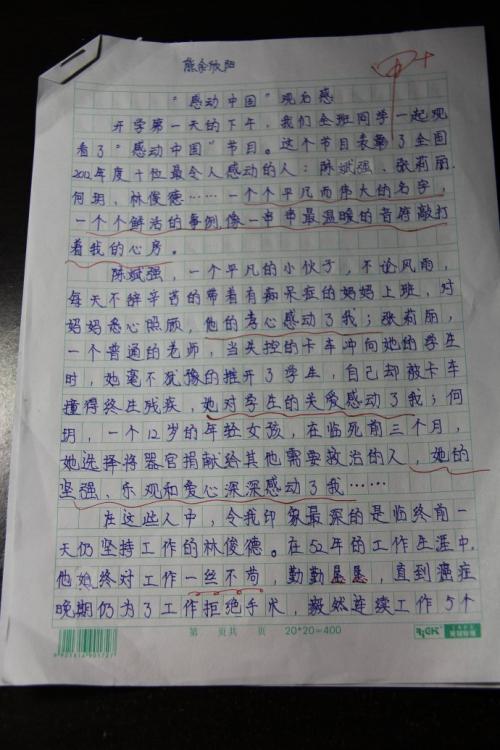 熊余欣阳
"感动中国"观后感
开学第一天的下午，我们全班同学一起观
看了"感动中国"节目。这个节目表彰了全国
2012年度十位最令人感动的人：陈斌强、张莉丽、
何玥、林俊德……一个个平凡而伟大的名字，
一个个鲜活的事例，像一串串最温暖的音符敲打
着我的心房。
陈斌强，一个平凡的小伙子，不论风雨，
每天不辞辛苦的带着有痴呆症的妈妈上班，对
妈妈悉心照顾，他的孝心感动了我；张莉丽，
一个普通的老师，当失控的卡车冲向她的学生
时，她毫不犹豫的推开了学生，自己却被卡车
撞得终生残疾，她对学生的关爱感动了我；何
玥，一个12岁的年轻女孩，在临死前三个月，
她选择将器官捐献给其他需要救治的人，她的
坚强、乐观和爱心深深感动了我……
在这些人中，令我印象最深的是临终前一
天仍坚持工作的林俊德。在52年的工作生涯中，
他始终对工作一丝不苟，勤勤恳恳，直到癌症
晚期仍为了工作拒绝手术，毅然连续工作5个
第 页共 页 20*20=400